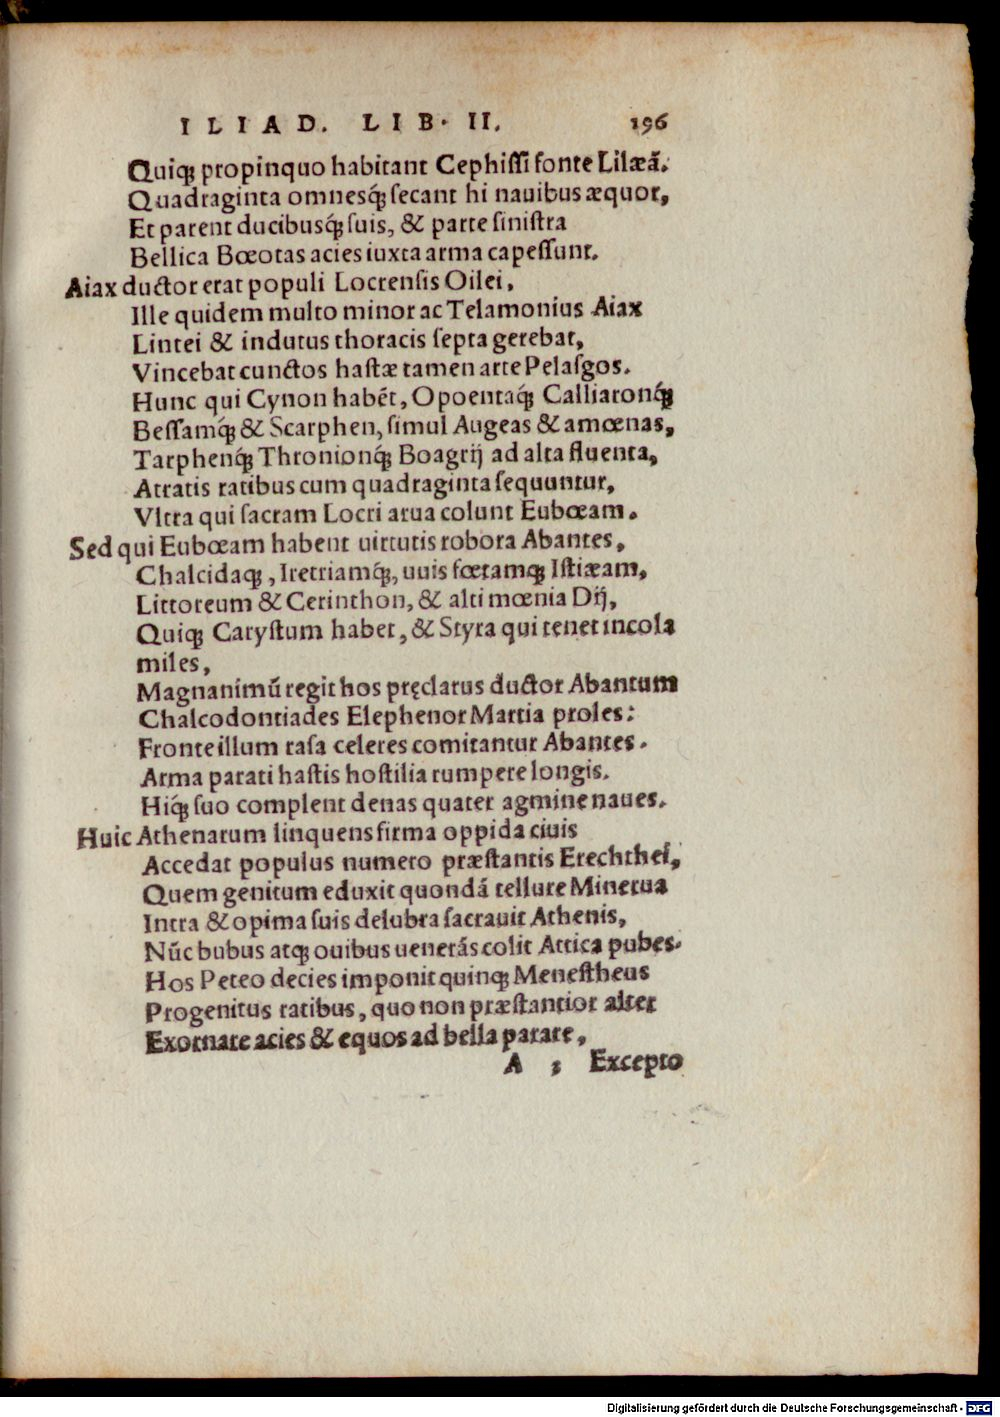 ILIAD. LIB. II. 196
Quiq; propinquo habitant Cephiſſi fonte Lilæā.
Quadraginta omnesq́; ſecant hi nauibus æquor,
Et parent ducibusq́; ſuis, & parte ſiniſtra
Bellica Bœotas acies iuxta arma capeſſunt.
Aiax ductor erat populi Locrenſis Oilei,
Ille quidem multo minor ac Telamonius Aiax
Lintei & indutus thoracis ſepta gerebat,
Vincebat cunctos haſtæ tamen arte Pelaſgos.
Hunc qui Cynon habēt, Opoentaq́; Calliaronq́;
Beſſamq́; & Scarphen, ſimul Augeas & amœnas,
Tarphenq́; Thronionq́; Boagrij ad alta fluenta,
Atratis ratibus cum quadraginta ſequuntur,
Vltra qui ſacram Locri arua colunt Eubœam.
Sed qui Eubœam habent uirtutis robora Abantes,
Chalcidaq;, Iretriamq́;, uuis fœtamq; Iſtiæam,
Littoreum & Cerinthon, & alti mœnia Dij,
Quiq; Caryſtum habet, & Styra qui tenet incola
miles,
Magnanimū regit hos pręclarus ductor Abantum
Chalcodontiades Elephenor Martia proles:
Fronte illum raſa celeres comitantur Abantes.
Arma parati haſtis hoſtilia rumpere longis.
Hiq́; ſuo complent denas quater agmine naues.
Huic Athenarum linquens firma oppida ciuis
Accedat populus numero præſtantis Erechthei,
Quem genitum eduxit quondā tellure Minerua
Intra & opima ſuis delubra ſacrauit Athenis,
Nūc bubus atq; ouibus uenerās colit Attica pubes.
Hos Peteo decies imponit quinq; Meneſtheus
Progenitus ratibus, quo non præſtantior alter
Exornare acies & equos ad bella parare,
A ; Excepto
Digitalisierung gefördert durch die Deutsche Forschungsgemeinschaft - DFG